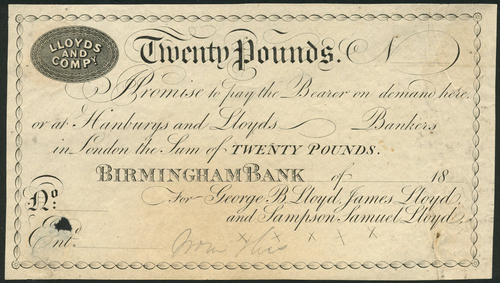 LLOYDS
AND
COMPY
Twenty Pounds. No
I Promise to pay the Bearer on demand here
or at Hanburys and Lloyds Bankers
in London the Sum of TWENTY POUNDS.
BIRMINGHAM BANK of 18
No. For George B. Lloyd, James Lloyd,
and Sampson Samuel Lloyd,
Entd x x x x x